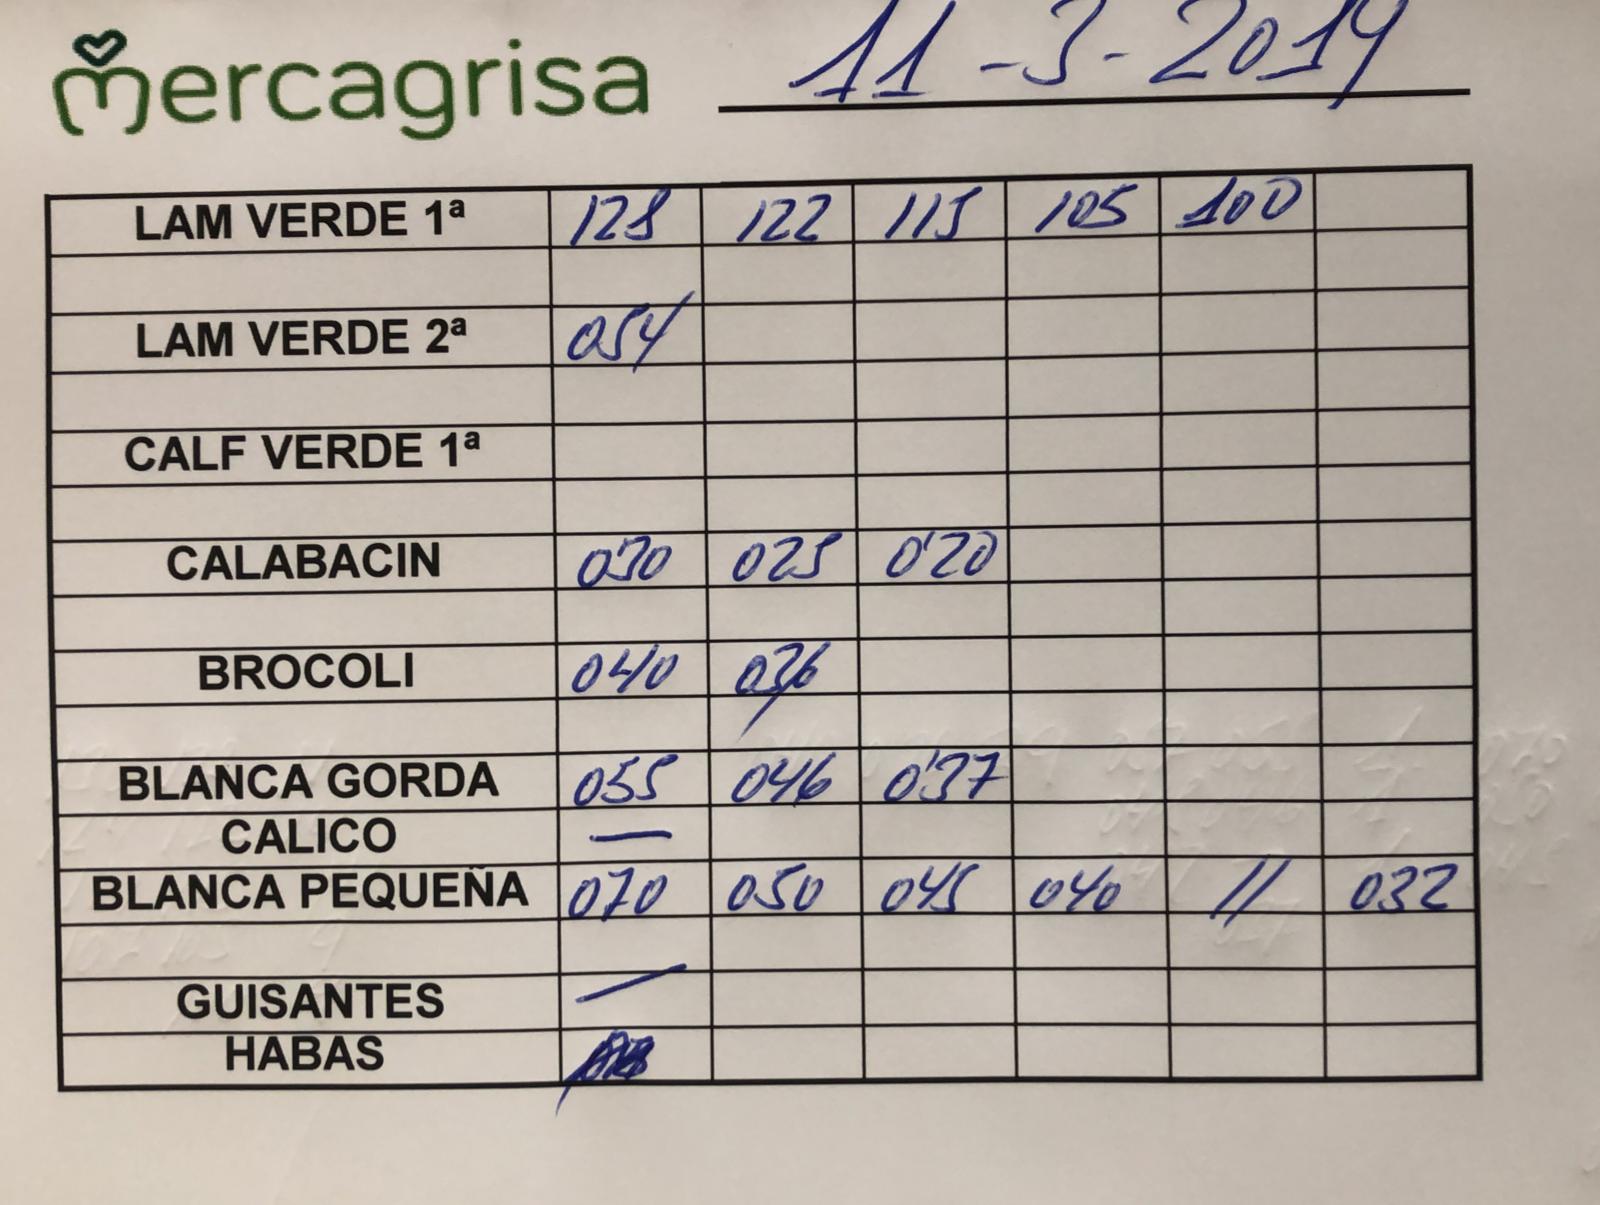 mercagrisa 11-3-2019
LAM VERDE 1ª 128 122 115 105 100
LAM VERDE 2ª 054
CALF VERDE 1ª
CALABACIN 0'30 025 0'20
BROCOLI 040 036
BLANCA GORDA 055 046 0'37
CALICO —
BLANCA PEQUEÑA 070 050 045 040 // 032
GUISANTES —
HABAS